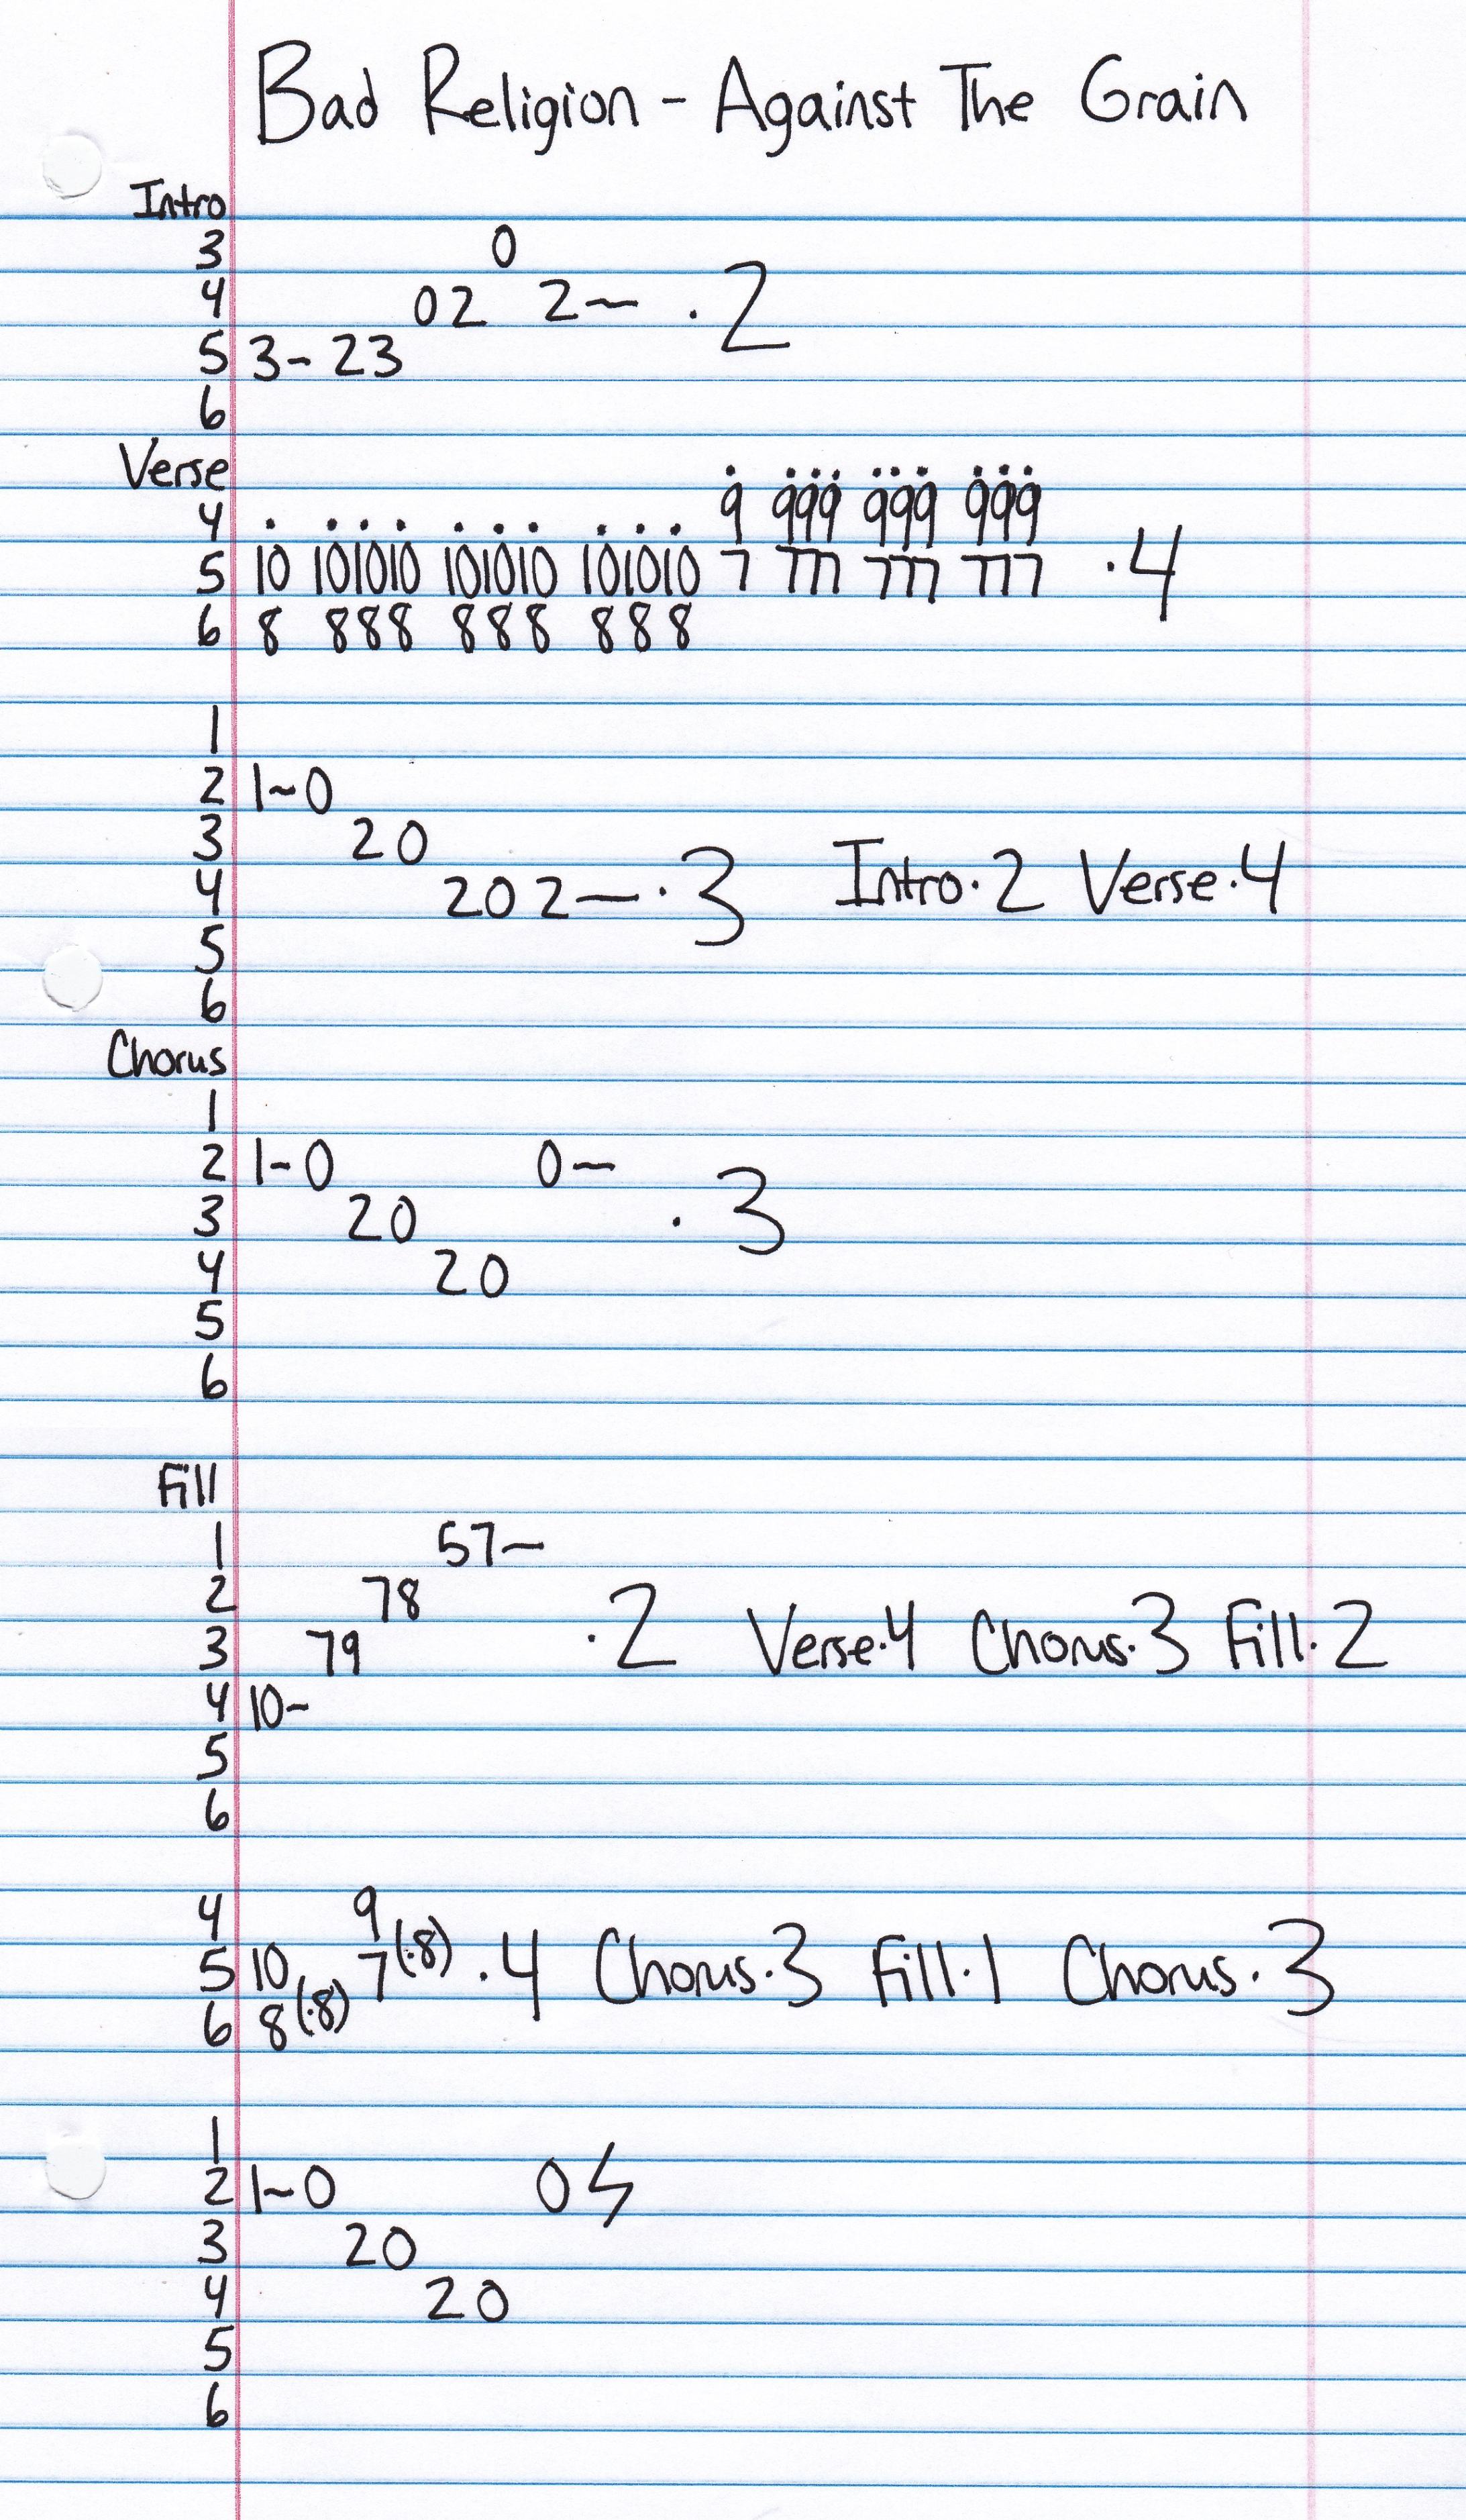 Bad Religion - Against The Grain
Intro
3 0
4 02 2~ .2
5 3- 23
6
Verse
9 999 999 999
4
5 10 101010 101010 101010 7 777 777 777 .4
6 8 888 888 888
1
2 1~0
3 20
4 202~ .3 Intro.2 Verse.4
5
6
Chorus
1
2 1-0 0~
3 20 .3
4 20
5
6
Fill
1 57~
2 78
3 79 .2 Verse.4 Chorus.3 Fill.2
4 10-
5
6
4 9
5 10 7(.8) .4 Chorus.3 Fill.1 Chorus.3
6 8(.8)
1
2 1~0 0
3 20
4 20
5
6